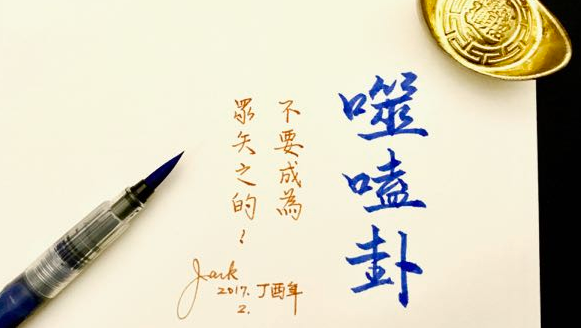 噬嗑卦
不要成為
眾矢之的！
Jack
2017.丁酉年
2.